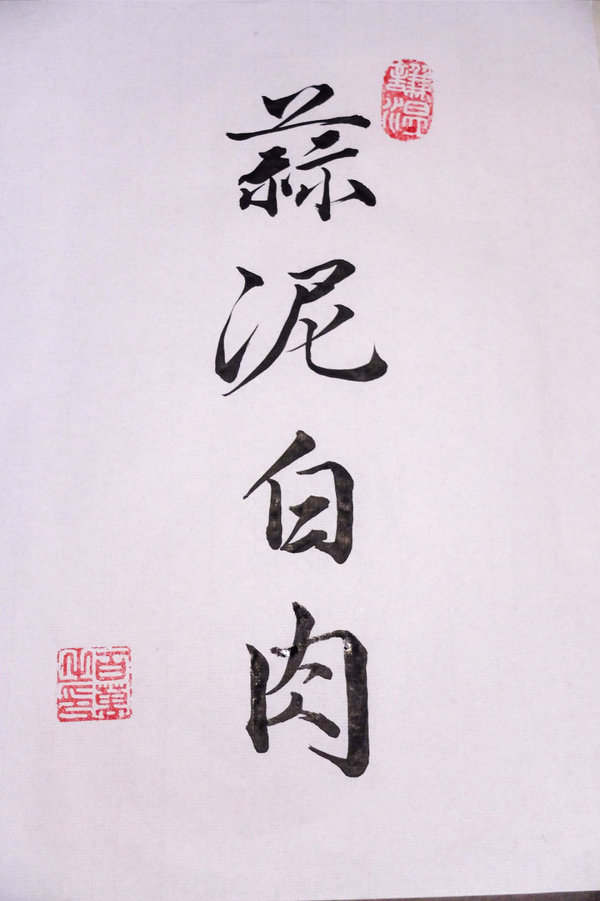 蒜泥白肉